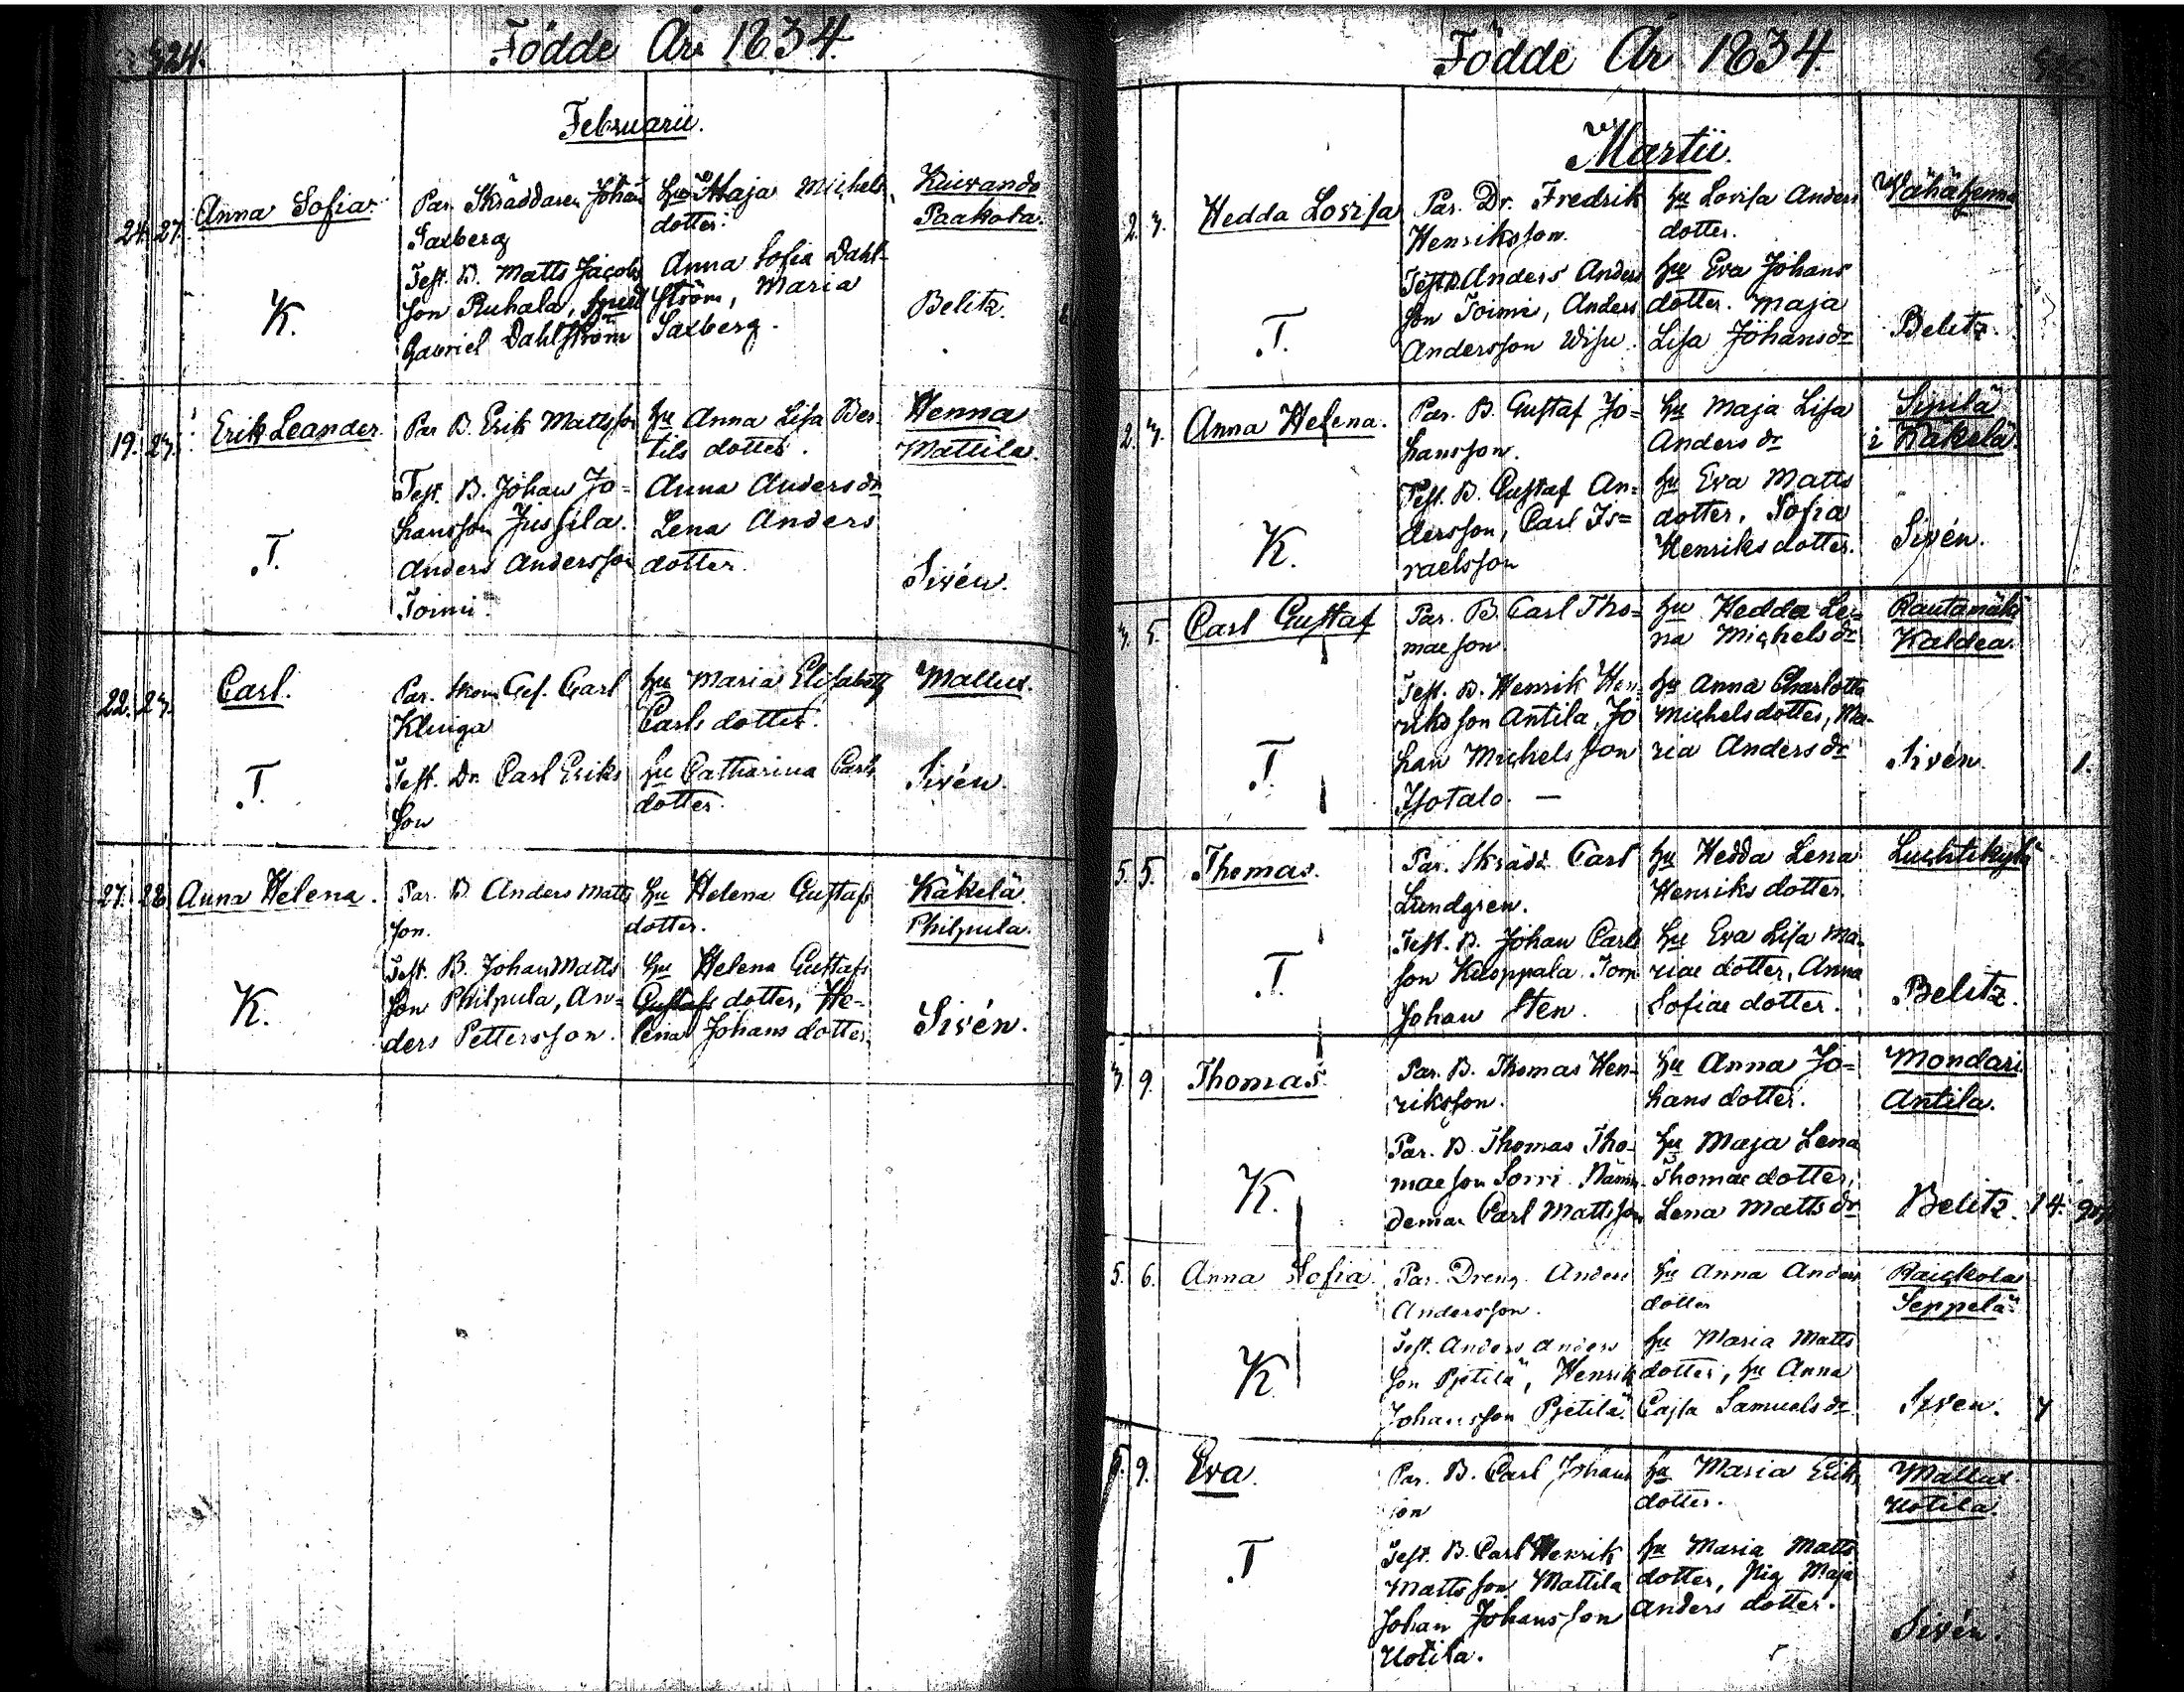 324.
Födde År 1834.
Februarii.
24. 27. Anna Sofia.
K.
Par. Skräddaren Johan
Saxberg
Test. B. Matts Jacobs
son Ruhala,
Gabriel Dahlström
hu Maja Michels
dotter.
Anna Sofia Dahl-
ström, Maria
Saxberg.
Kuivando
Paakola.
Belitz.
19. 23. Erik Leander.
T.
Par B. Erik Mattsson
Test. B. Johan Jo-
hansson Jussila.
Anders Andersson
Toimi.
hu Anna Lisa Ber-
tils dotter.
Anna Anders dr
Lena Anders
dotter.
Henna
Mattila.
Sivén.
22. 23. Carl.
T.
Par. Carl
Klinga
Test. Dr. Carl Eriks
son
hu Maria Elisabeth
Carls dotter.
hu Catharina Carls
dotter.
Mallus.
Sivén.
27. 28. Anna Helena.
K.
Par. B. Anders Matts
son.
Test. B. Johan Matts
son Philpula, An-
ders Pettersson.
hu Helena Gustafs
dotter.
hu Helena Gustafs
Gustafs dotter, He-
lena Johans dotter.
Käkelä.
Philpula.
Sivén.
Födde År 1834.
Martii.
2. 3. Hedda Lovisa
T.
Par. Dr. Fredrik
Henriksson.
Test. B. Anders Anders
son Toimi, Anders
Andersson Wisu.
hu Lovisa Anders
dotter.
hu Eva Johans
dotter. Maja
Lisa Johans dr
Wähähenna
Belitz.
2. 3. Anna Helena.
K.
Par. B. Gustaf Jo-
hansson.
Test. B. Gustaf An-
dersson, Carl Is-
raelsson
hu Maja Lisa
Anders dr
hu Eva Matts
dotter, Sofia
Henriks dotter.
Sipilä
i Käkelä.
Sivén.
3. 5. Carl Gustaf
T.
Par. B. Carl Tho-
mae son.
Test. B. Henrik Hen-
riks son Antila, Jo
han Michels son
Isotalo. —
hu Hedda Le-
na Michels dr
hu Anna Charlotta
Michels dotter, Ma-
ria Anders dr
Rautamäki
Kaldea.
Sivén.
1.
5. 5. Thomas.
T.
Par. Skrädd. Carl
Lundgren.
Test. B. Johan Carls
son Kuoppala. Torp
Johan Sten.
hu Hedda Lena
Henriks dotter.
hu Eva Lisa Ma-
riae dotter, Anna
Sofiae dotter.
Luchtikylä
Belitz.
3. 9. Thomas
K.
Par. B. Thomas Hen-
riksson.
Par. B. Thomas Tho-
mae son Sorri. Nämn-
deman Carl Mattsson
hu Anna Jo-
hans dotter.
hu Maja Lena
Thomae dotter,
Lena Matts dr
Mondari
Antila.
Belitz. 14.
5. 6. Anna Sofia.
K
Par. Dreng. Anders
Andersson.
Test. Anders Anders
son Pjetilä, Henrik
Johansson Pjetilä.
hu Anna Anders
dotter
hu Maria Matts
dotter, hu Anna
Cajsa Samuels dr
Raickola
Seppelä.
Siven. 7
9. Eva.
T
Par. B. Carl Johans
son
Test. B. Carl Henrik
Matts son Mattila
Johan Johansson
Uotila.
hu Maria Eriks
dotter.
hu Maria Matts
dotter, Pig Maja
Anders dotter.
Mallus
Uotila.
Sivén.